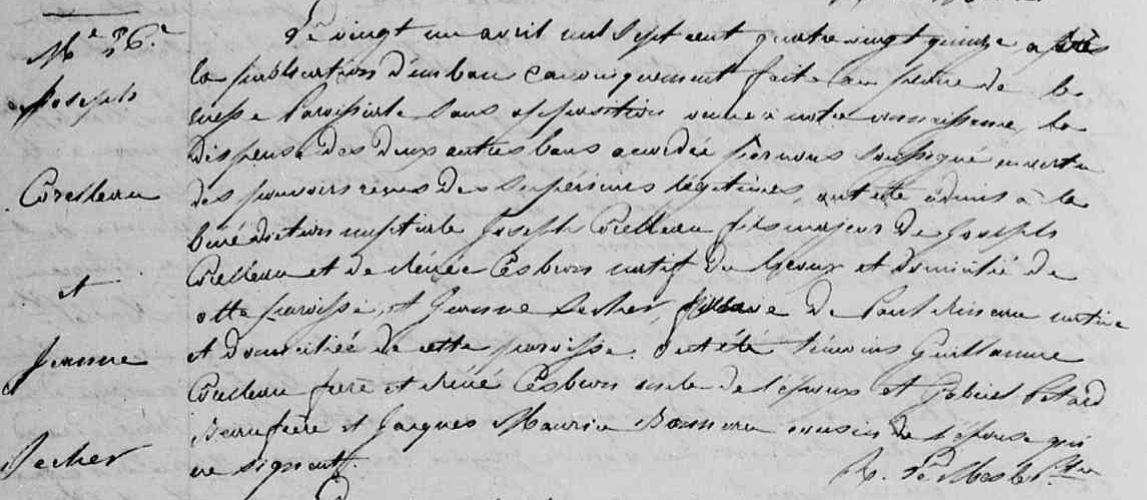 M.e 26.e
Joseph
Corelleau
et
Jeanne
Secher
Le vingt un avril mil sept cent quatre vingt quinze après
la publication d'un ban canoniquement faite au prône de la
messe Paroissiale sans opposition venue à notre connaissance, la
dispense des deux autres bans accordée par nous soussigné en vertu
des pouvoirs reçus des supérieurs légitimes, ont été admis à la
bénédiction nuptiale Joseph Corelleau fils majeur de Joseph
Corelleau et de Rénée Cesbron natif du et domicilié de
cette paroisse, et Jeanne Secher, veuve de Paul Rineau native
et domiciliée de cette paroisse. Ont été témoins Guillaume
Corelleau frere et Réné Cesbron oncle de l'époux et Gabriel Petard
Beaufrère et Jacques Maurice cousin de l'épouse qui
ne signent.